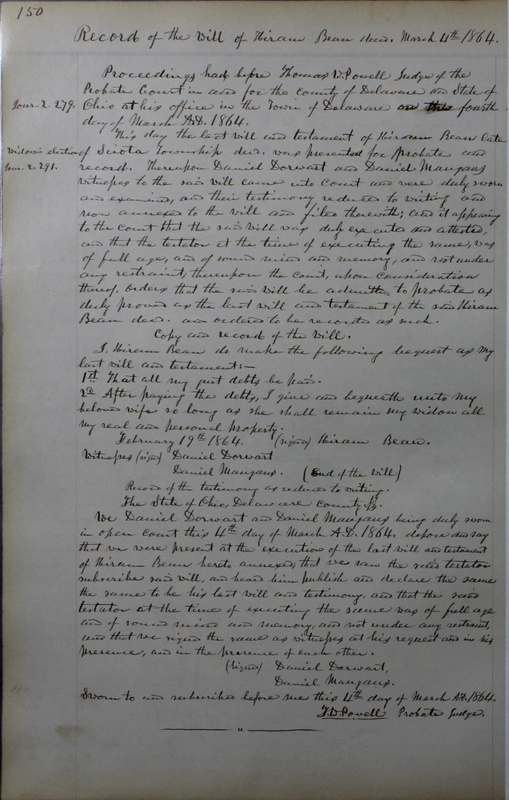 150
Record of the Will of Hiram Bean decd. March 4th 1864.
Proceedings had before Thomas W. Powell Judge of the
Probate Court in and for the County of Delaware and State of
Jour. 2. 279.
Ohio at his office in the Town of Delaware on the fourth
day of March A.D. 1864.
This day the last will and testament of Hiram Bean late
Widow's election
of Sciota Township decd. was presented for probate and
Jour. 2. 291.
record. Thereupon Daniel Dorwart and Daniel Maugans
witnesses to the said will came into Court and were duly sworn
and examined, and their testimony reduced to writing and
now annexed to the will and filed therewith; and it appearing
to the court that the said will was duly executed and attested,
and that the testator at the time of executing the same, was
of full age, and of sound mind and memory, and not under
any restraint, thereupon the court, upon consideration
thereof, orders that the said will be admitted to probate as
duly proved as the last will and testament of the said Hiram
Bean decd. and ordered to be recorded as such.
Copy and record of the Will.
I, Hiram Bean do make the following bequest as my
last will and testament:—
1st That all my just debts be paid.
2d After paying the debts, I give and bequeath unto my
beloved wife so long as she shall remain my widow all
my real and personal property.
February 19th 1864. (signed) Hiram Bean.
Witnesses (signed) Daniel Dorwart
Daniel Maugans. (End of the Will)
Record of the testimony as reduced to writing.
The State of Ohio, Delaware County, ss.
We Daniel Dorwart and Daniel Maugans being duly sworn
in open Court this 4th day of March A.D. 1864. depose and say
that we were present at the execution of the last will and testament
of Hiram Bean hereto annexed, that we saw the said testator
subscribe said will, and heard him publish and declare the same
the same to be his last will and testimony, and that the said
testator at the time of executing the same was of full age
and of sound mind and memory, and not under any restraint,
and that we signed the same as witnesses at his request and in his
presence, and in the presence of each other.
(signed) Daniel Dorwart,
Daniel Maugans.
Sworn to and subscribed before me this 4th day of March A.D. 1864.
T.W. Powell Probate Judge.